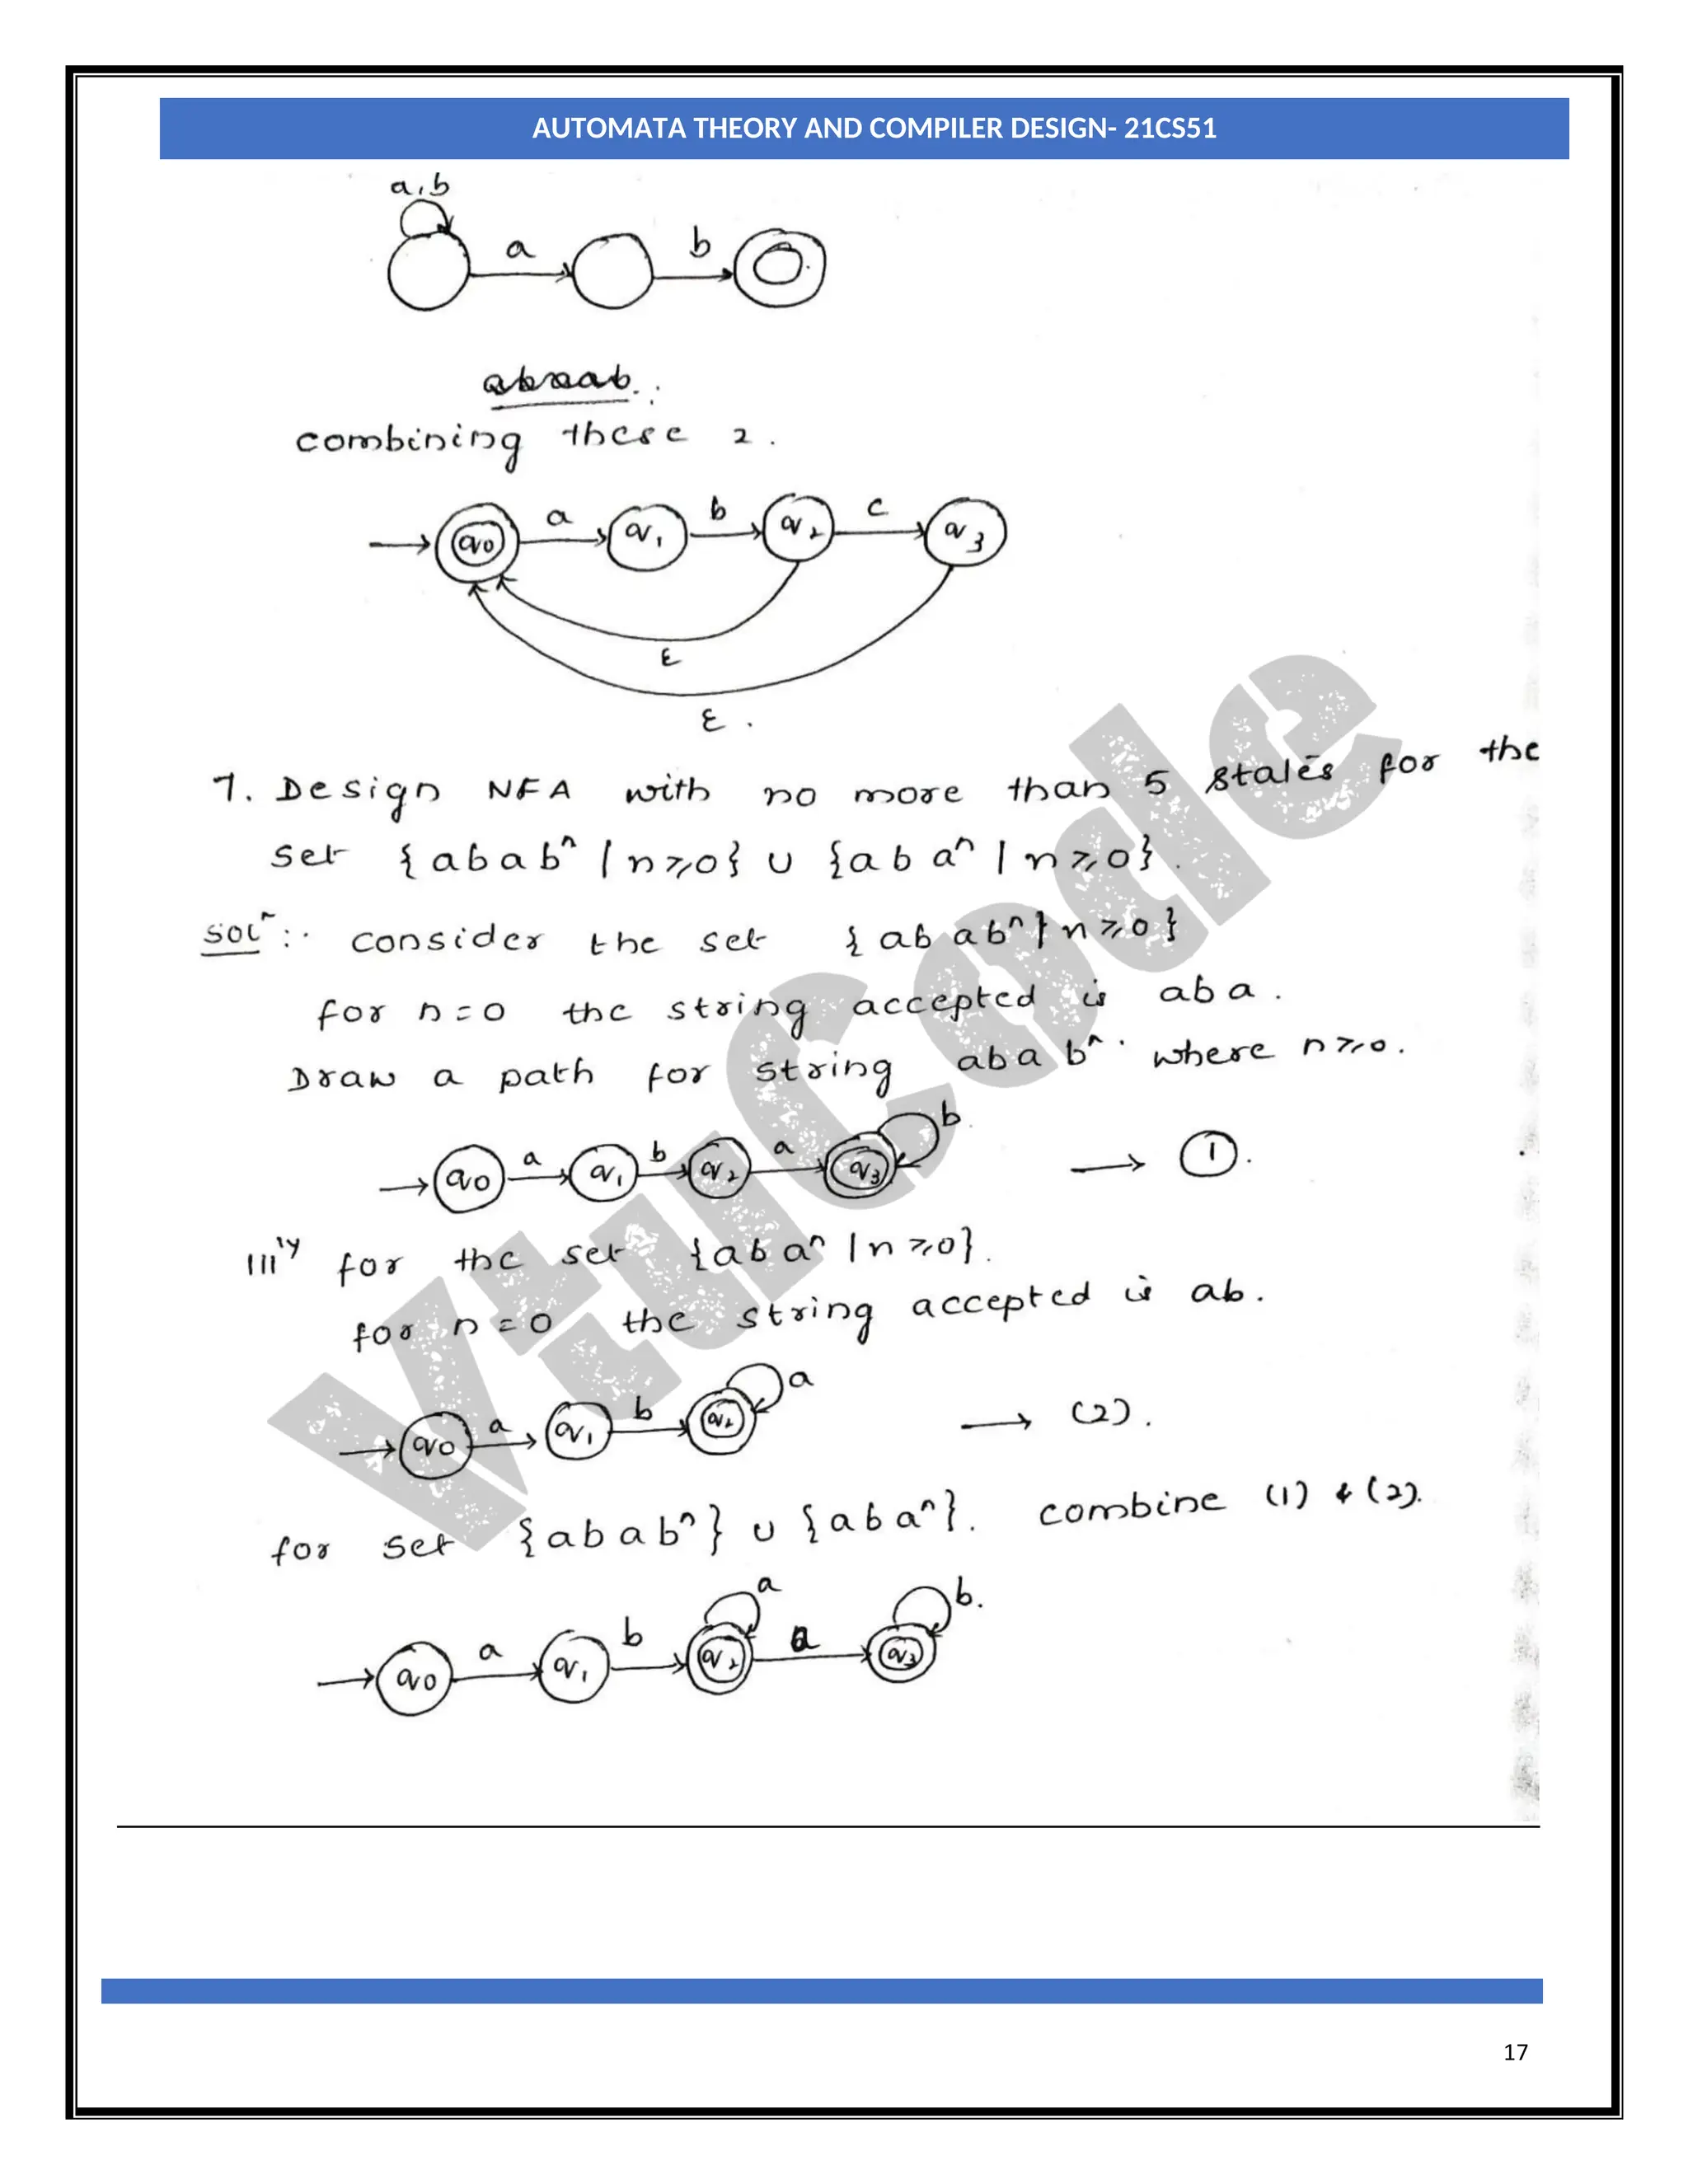 AUTOMATA THEORY AND COMPILER DESIGN- 21CS51
a,b
a b
combining these 2.
a b c
q0 q1 q2 q3
ε
ε.
7. Design NFA with no more than 5 states for the
set {abab^n | n≥0} ∪ {aba^n | n≥0}.
Sol^n:. consider the set {abab^n | n≥0}
for n=0 the string accepted is aba.
Draw a path for string abab^n. where n≥0.
b.
a b a
q0 q1 q2 q3 → 1.
|||ly for the set {aba^n | n≥0}.
for n=0 the string accepted is ab.
a
a b
q0 q1 q2 → (2).
for set {abab^n} ∪ {aba^n}. combine (1) & (2).
a b.
a b a
q0 q1 q2 q3
VtuCode
17